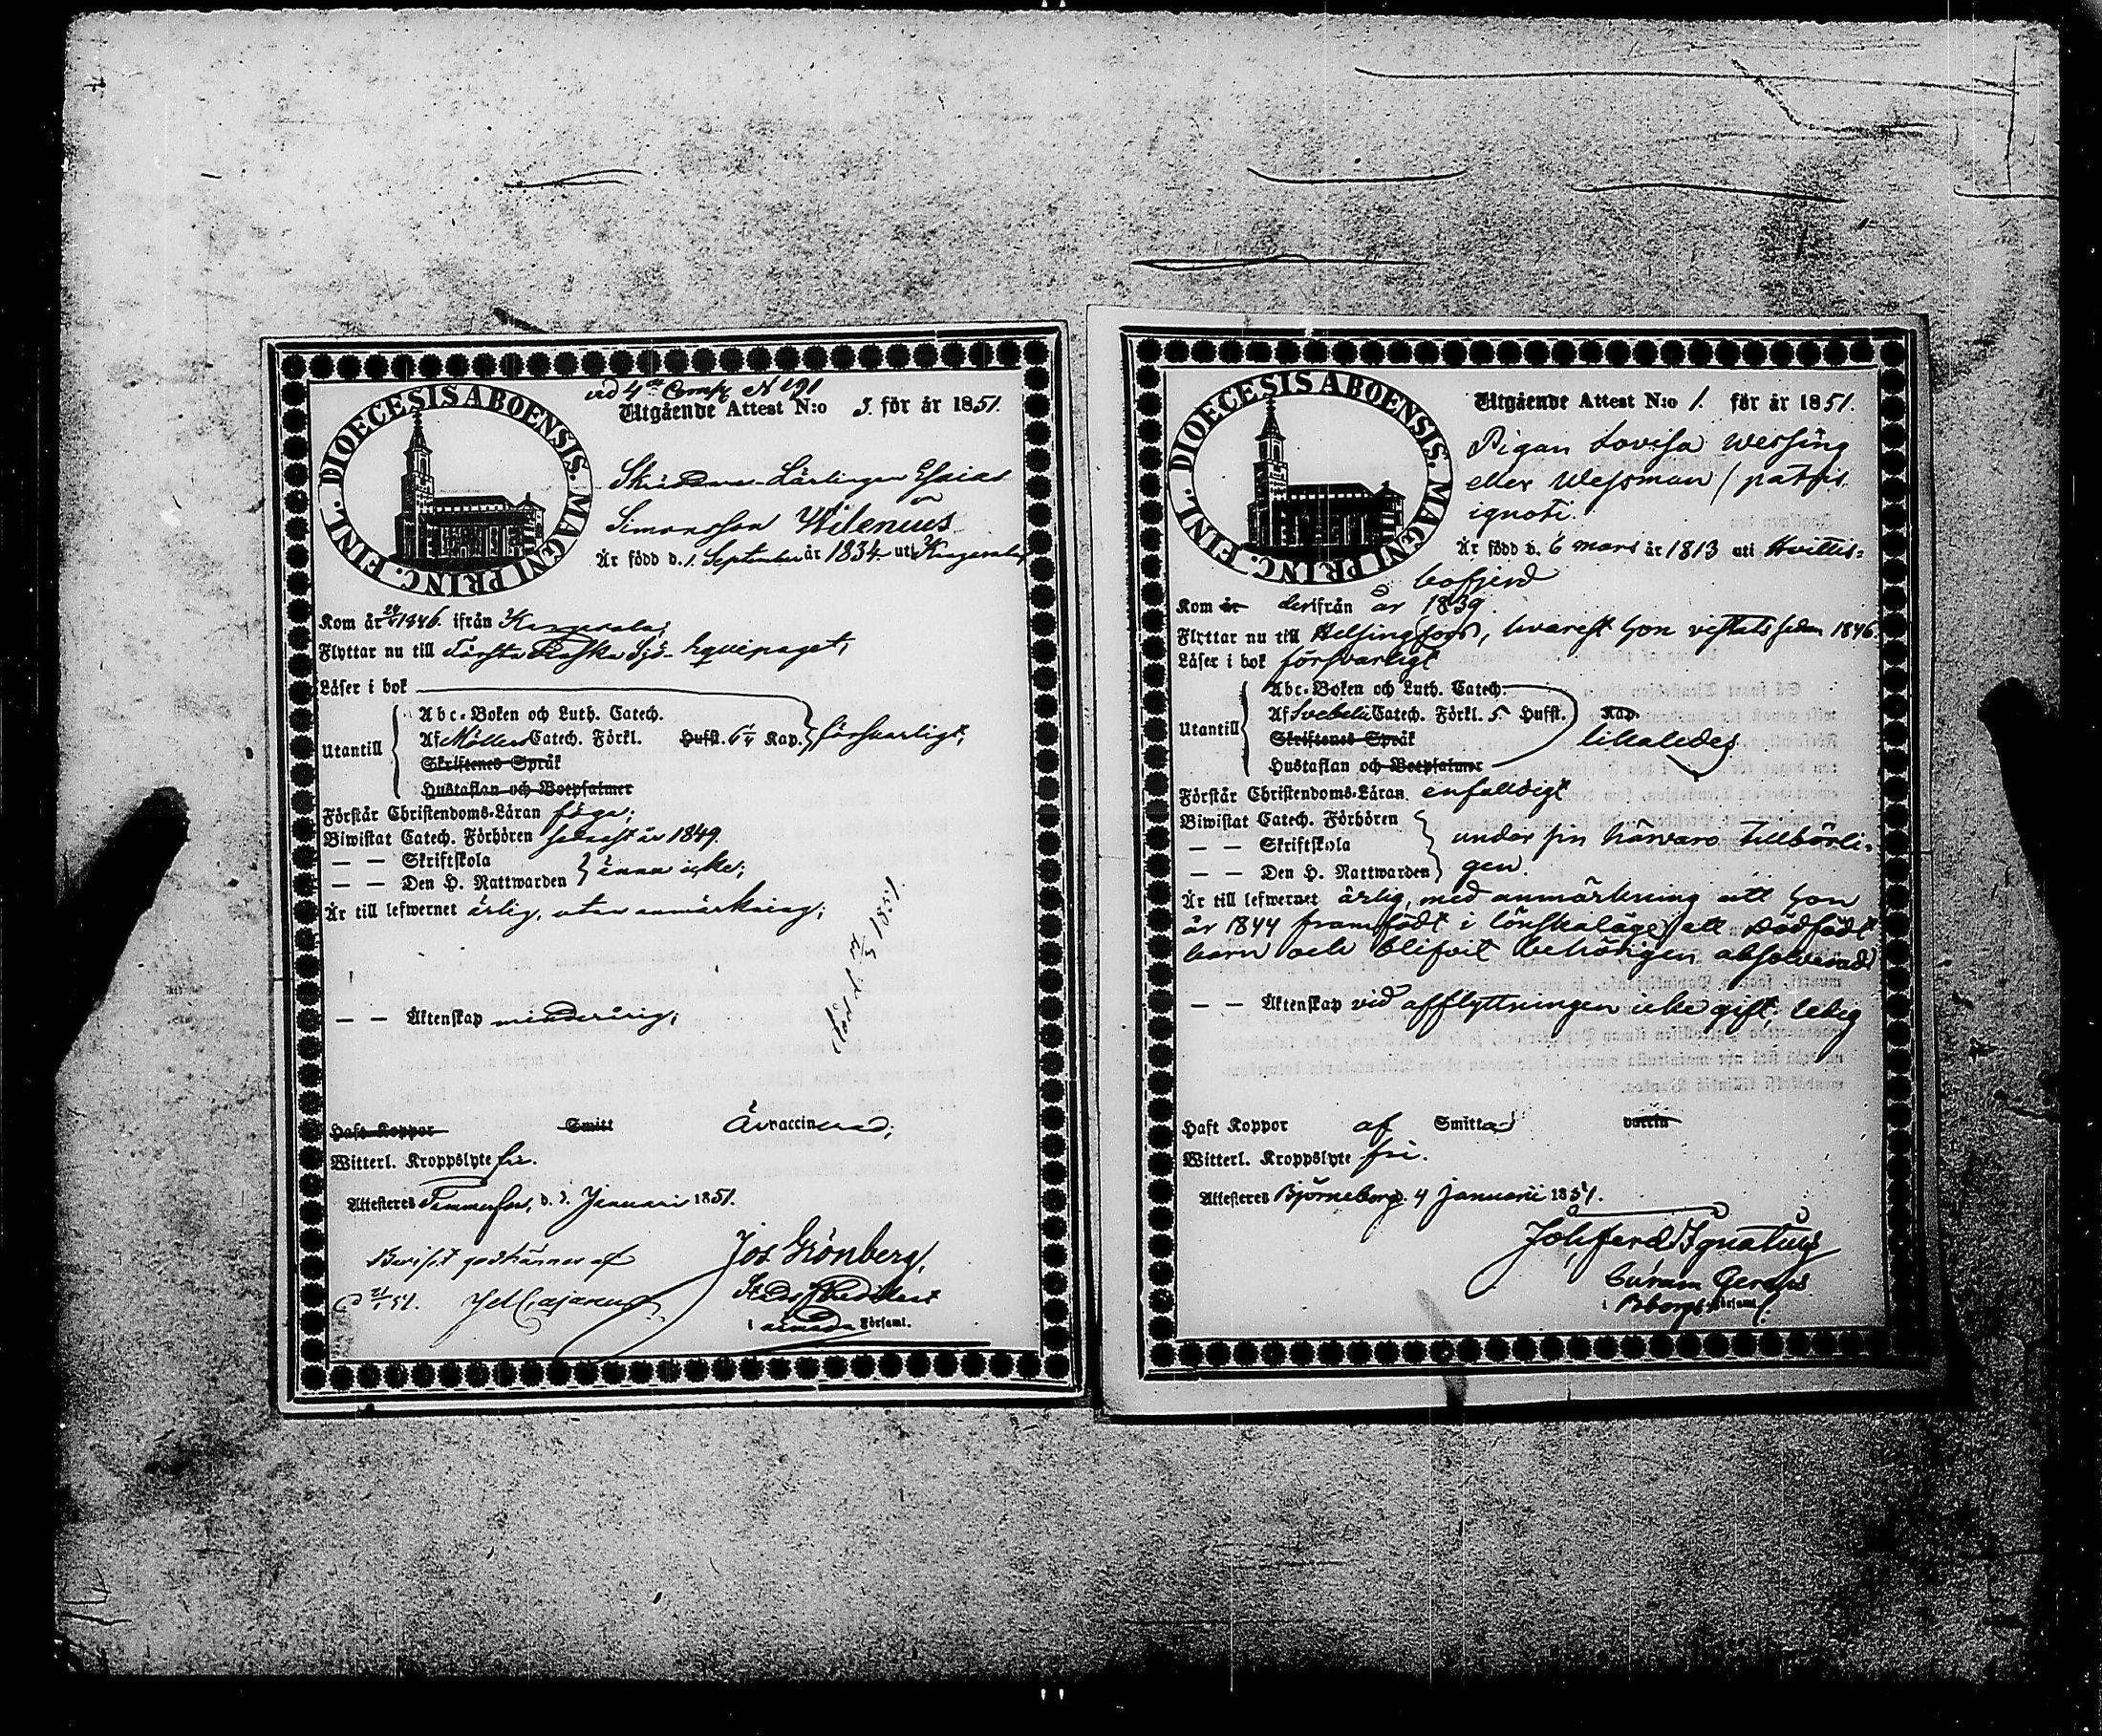 vid 4de Comp N 191
DIOECESIS ABOENSIS. MAGNI PRINC. FINL.
Utgående Attest N:o 3. för år 1851.
Lärlingen Esaias
Simonsson Wilenius
Är född d. 1. September år 1834 uti Kangasala
Kom år 1846. ifrån Kangasala;
Flyttar nu till Första Finska Sjö-Equipaget,
Läser i bok
Abc-Boken och Luth. Catech.
Utantill
Af Möllers Catech. Förkl. Hufst. Kap. försvarligt;
Skriftenes Språk
Hustaflan och Botpsalmer
Förstår Christendoms-Läran föga;
Biwistat Catech. Förhören senast år 1849.
— — Skriftskola
— — Den H. Nattwarden ännu icke;
Är till lefwernet ärlig, utan anmärkning;
— — Äktenskap minderårig;
Haft Koppor Smitt Är vaccinerad;
Witterl. Kroppslyte fri.
Attesteres Tammerfors, d. 3. Januari 1851.
Beviset godkännes af
Jos Grönberg,
i Församl.
DIOECESIS ABOENSIS. MAGNI PRINC. FINL.
Utgående Attest N:o 1. för år 1851.
Pigan Lovisa Wessing
eller Wessman / patris
ignoti.
Är född d. 6 mars år 1813 uti Hvittis-
bofjerd
Kom år derifrån år 1839.
Flyttar nu till Helsingfors, hvarest hon vistats sedan 1846.
Läser i bok försvarligt
Abc-Boken och Luth. Catech.
Utantill
Af Svebelii Catech. Förkl. 5 Hufst. Kap.
likaledes
Skriftenes Språk
Hustaflan och Botpsalmer
Förstår Christendoms-Läran enfalldigt
Biwistat Catech. Förhören
— — Skriftskola under sin härvaro tillbörli-
— — Den H. Nattwarden gen.
Är till lefwernet ärlig, med anmärkning att hon
år 1844 framfödt i lönskaläge ett dödfödt
barn och blifvit behörigen absolverad
— — Äktenskap vid afflyttningen icke gift; ledig
Haft Koppor af Smittad vaccin
Witterl. Kroppslyte fri.
Attesteres Björneborg d. 4 Januarii 1851.
Joh. Ferd. Ignatius
Curam Gerens
i Bborgs Församl.